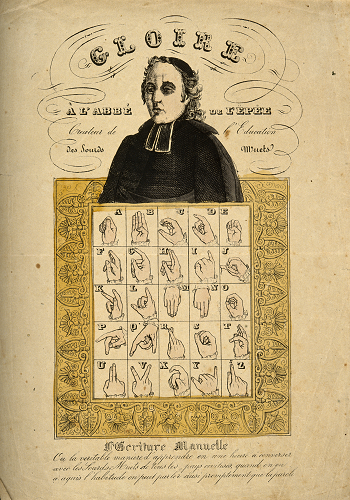 GLOIRE
A L'ABBÉ DE L'EPÉE
Createur de l'Education
des Sourds Muets
A B C D E
F G H I J
K L M N O
P Q R S T
U V X Y Z
l'Ecriture Manuelle
Ou la veritable maniere d'apprendre en une heure à converser
avec les Sourds-Muets de tous les pays car quand on en
a aquis l'habitude on peut parler aussi promptement que la parole